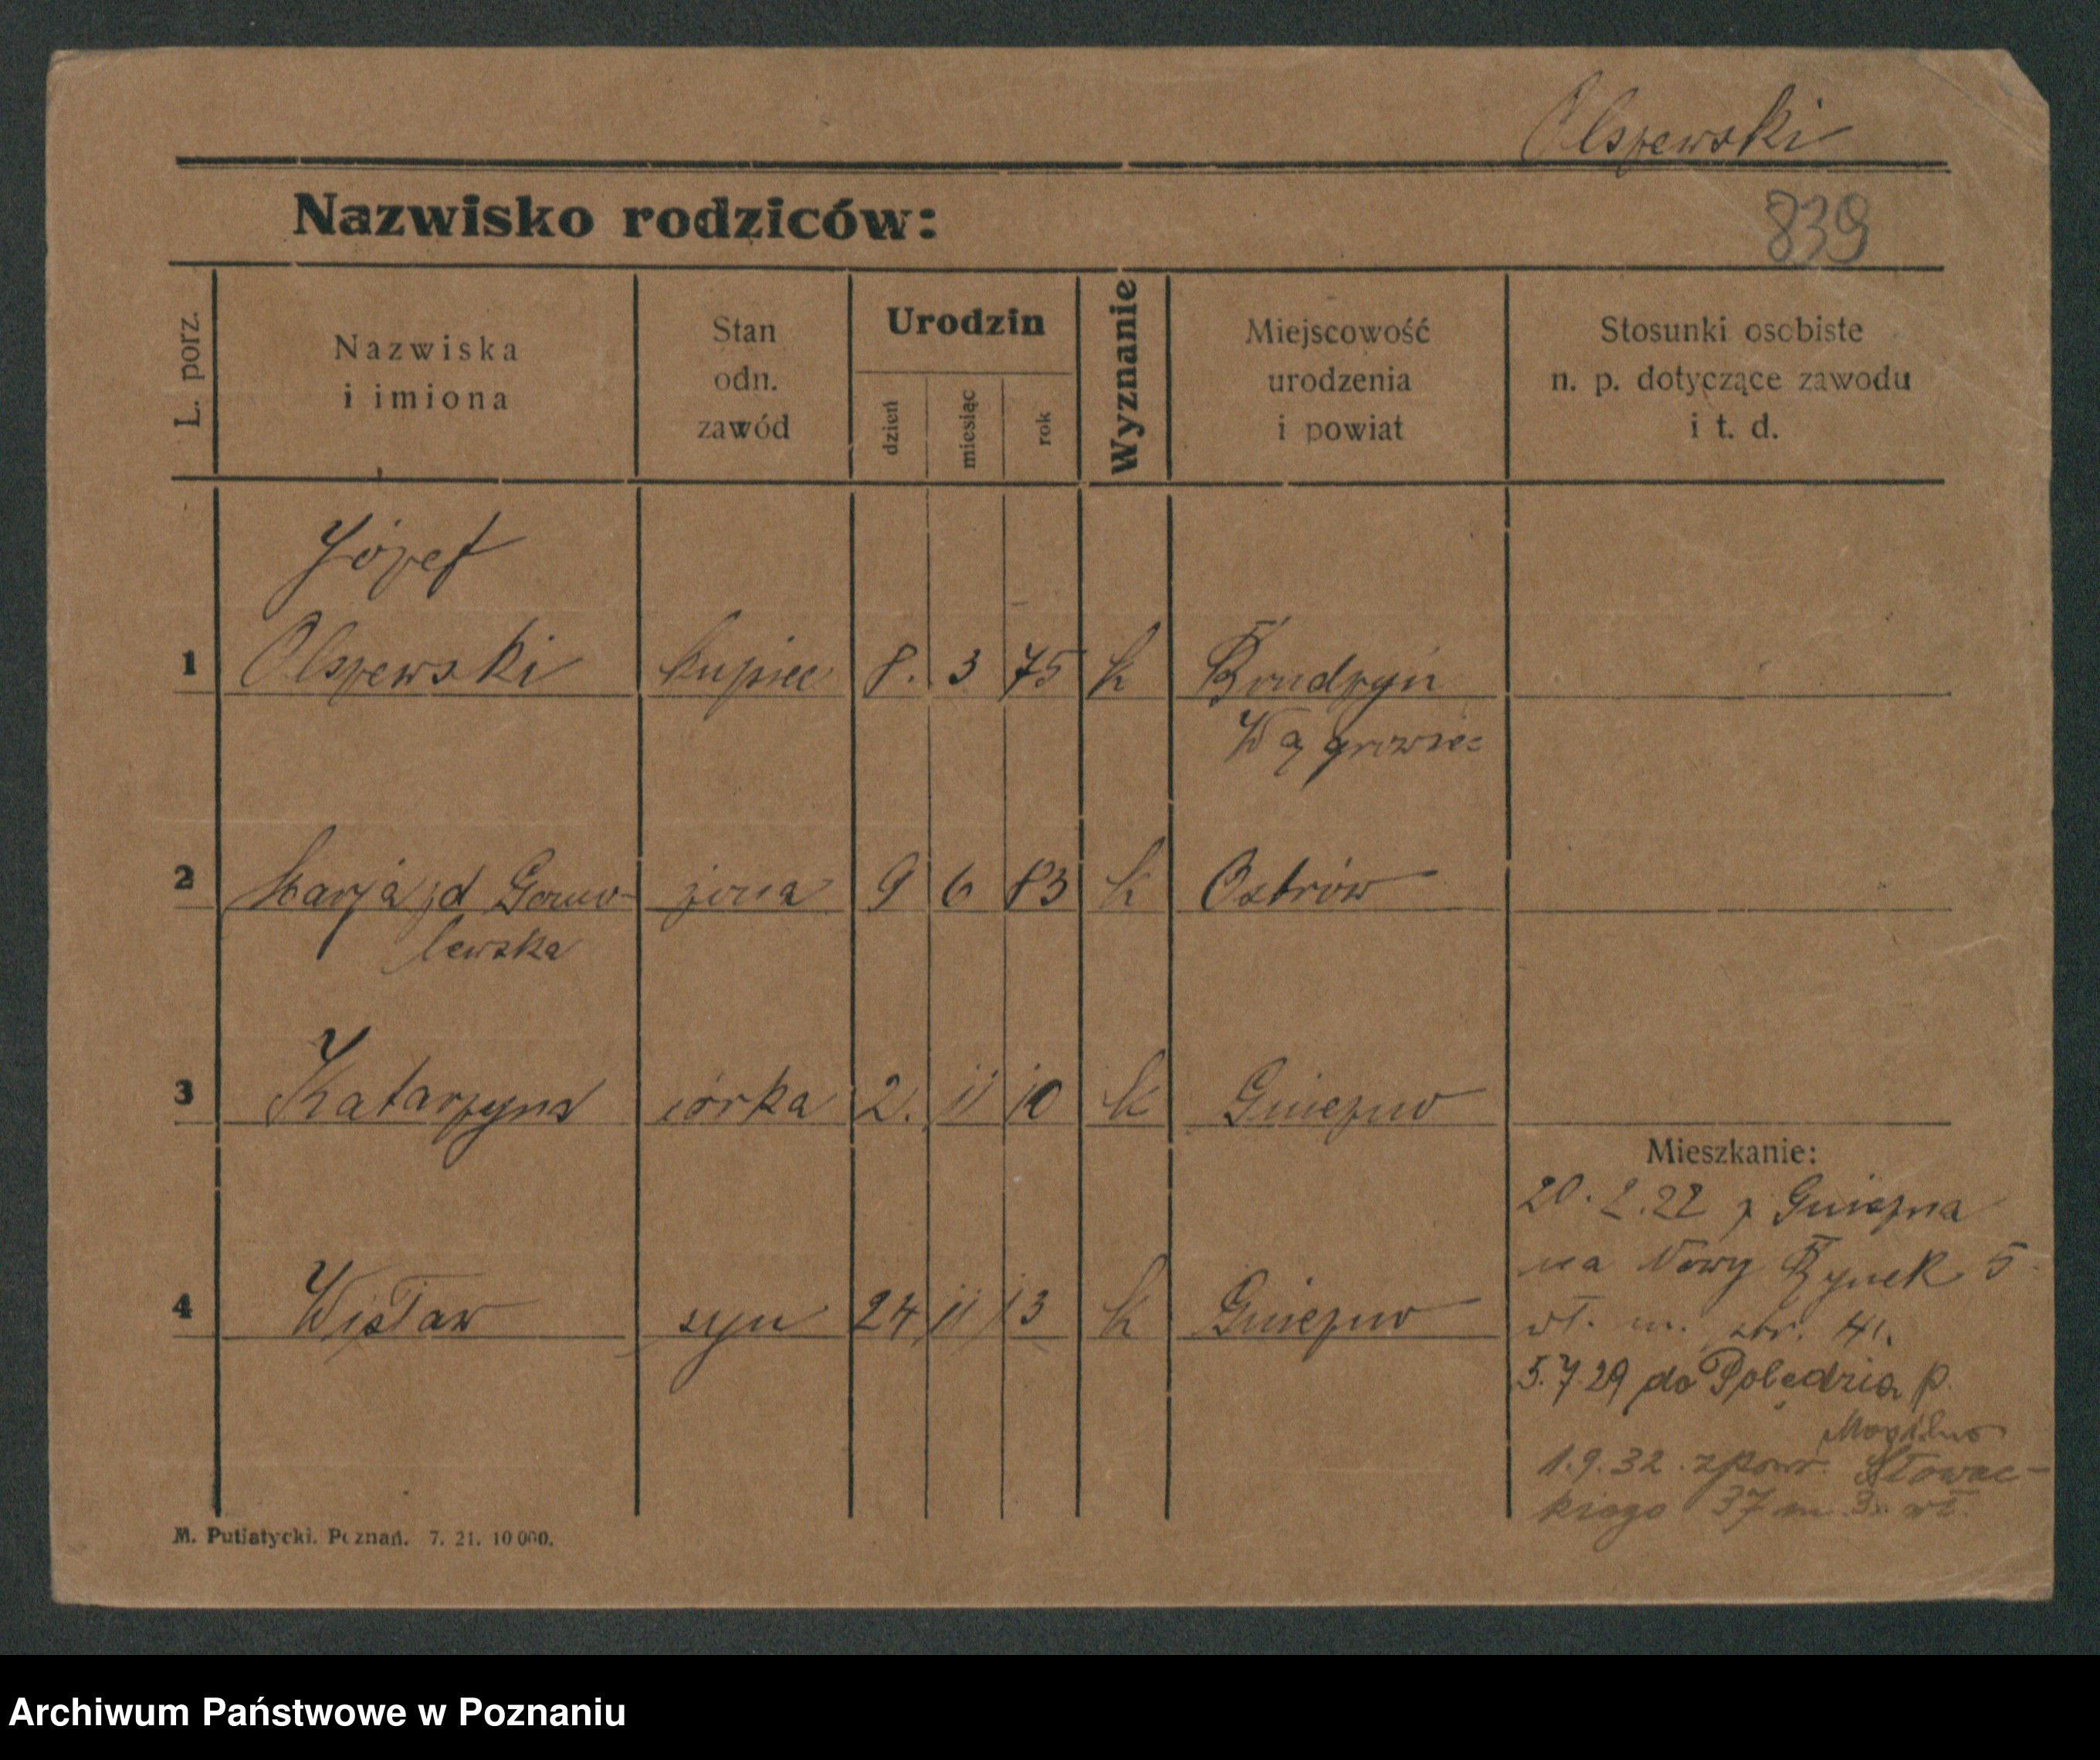 Olszewski
Nazwisko rodziców:
839
L. porz.
Nazwiska
i imiona
Stan
odn.
zawód
Urodzin
dzień
miesiąc
rok
Wyznanie
Miejscowość
urodzenia
i powiat
Stosunki osobiste
n. p. dotyczące zawodu
i t. d.
Józef
1 Olszewski kupiec 8. 3 75 k Brudzyń
Wągrowie=
2 Marja zd Gomo- żona 9 6 83 k Ostrów
lewska
3 Katarzyna córka 2. 11 10 k Gniezno
Mieszkanie:
20. 2. 22 z Gniezna
na Nowy Rynek 5
4 Wisław syn 24 11 13 k Gniezno
wł. m. str.
5.7.29 do Polędzia p.
Mogilno
1.9.32. zpowr. Słowac-
kiego 37 m. 3. wł.
M. Putiatycki. Poznań. 7. 21. 10 000.
Archiwum Państwowe w Poznaniu